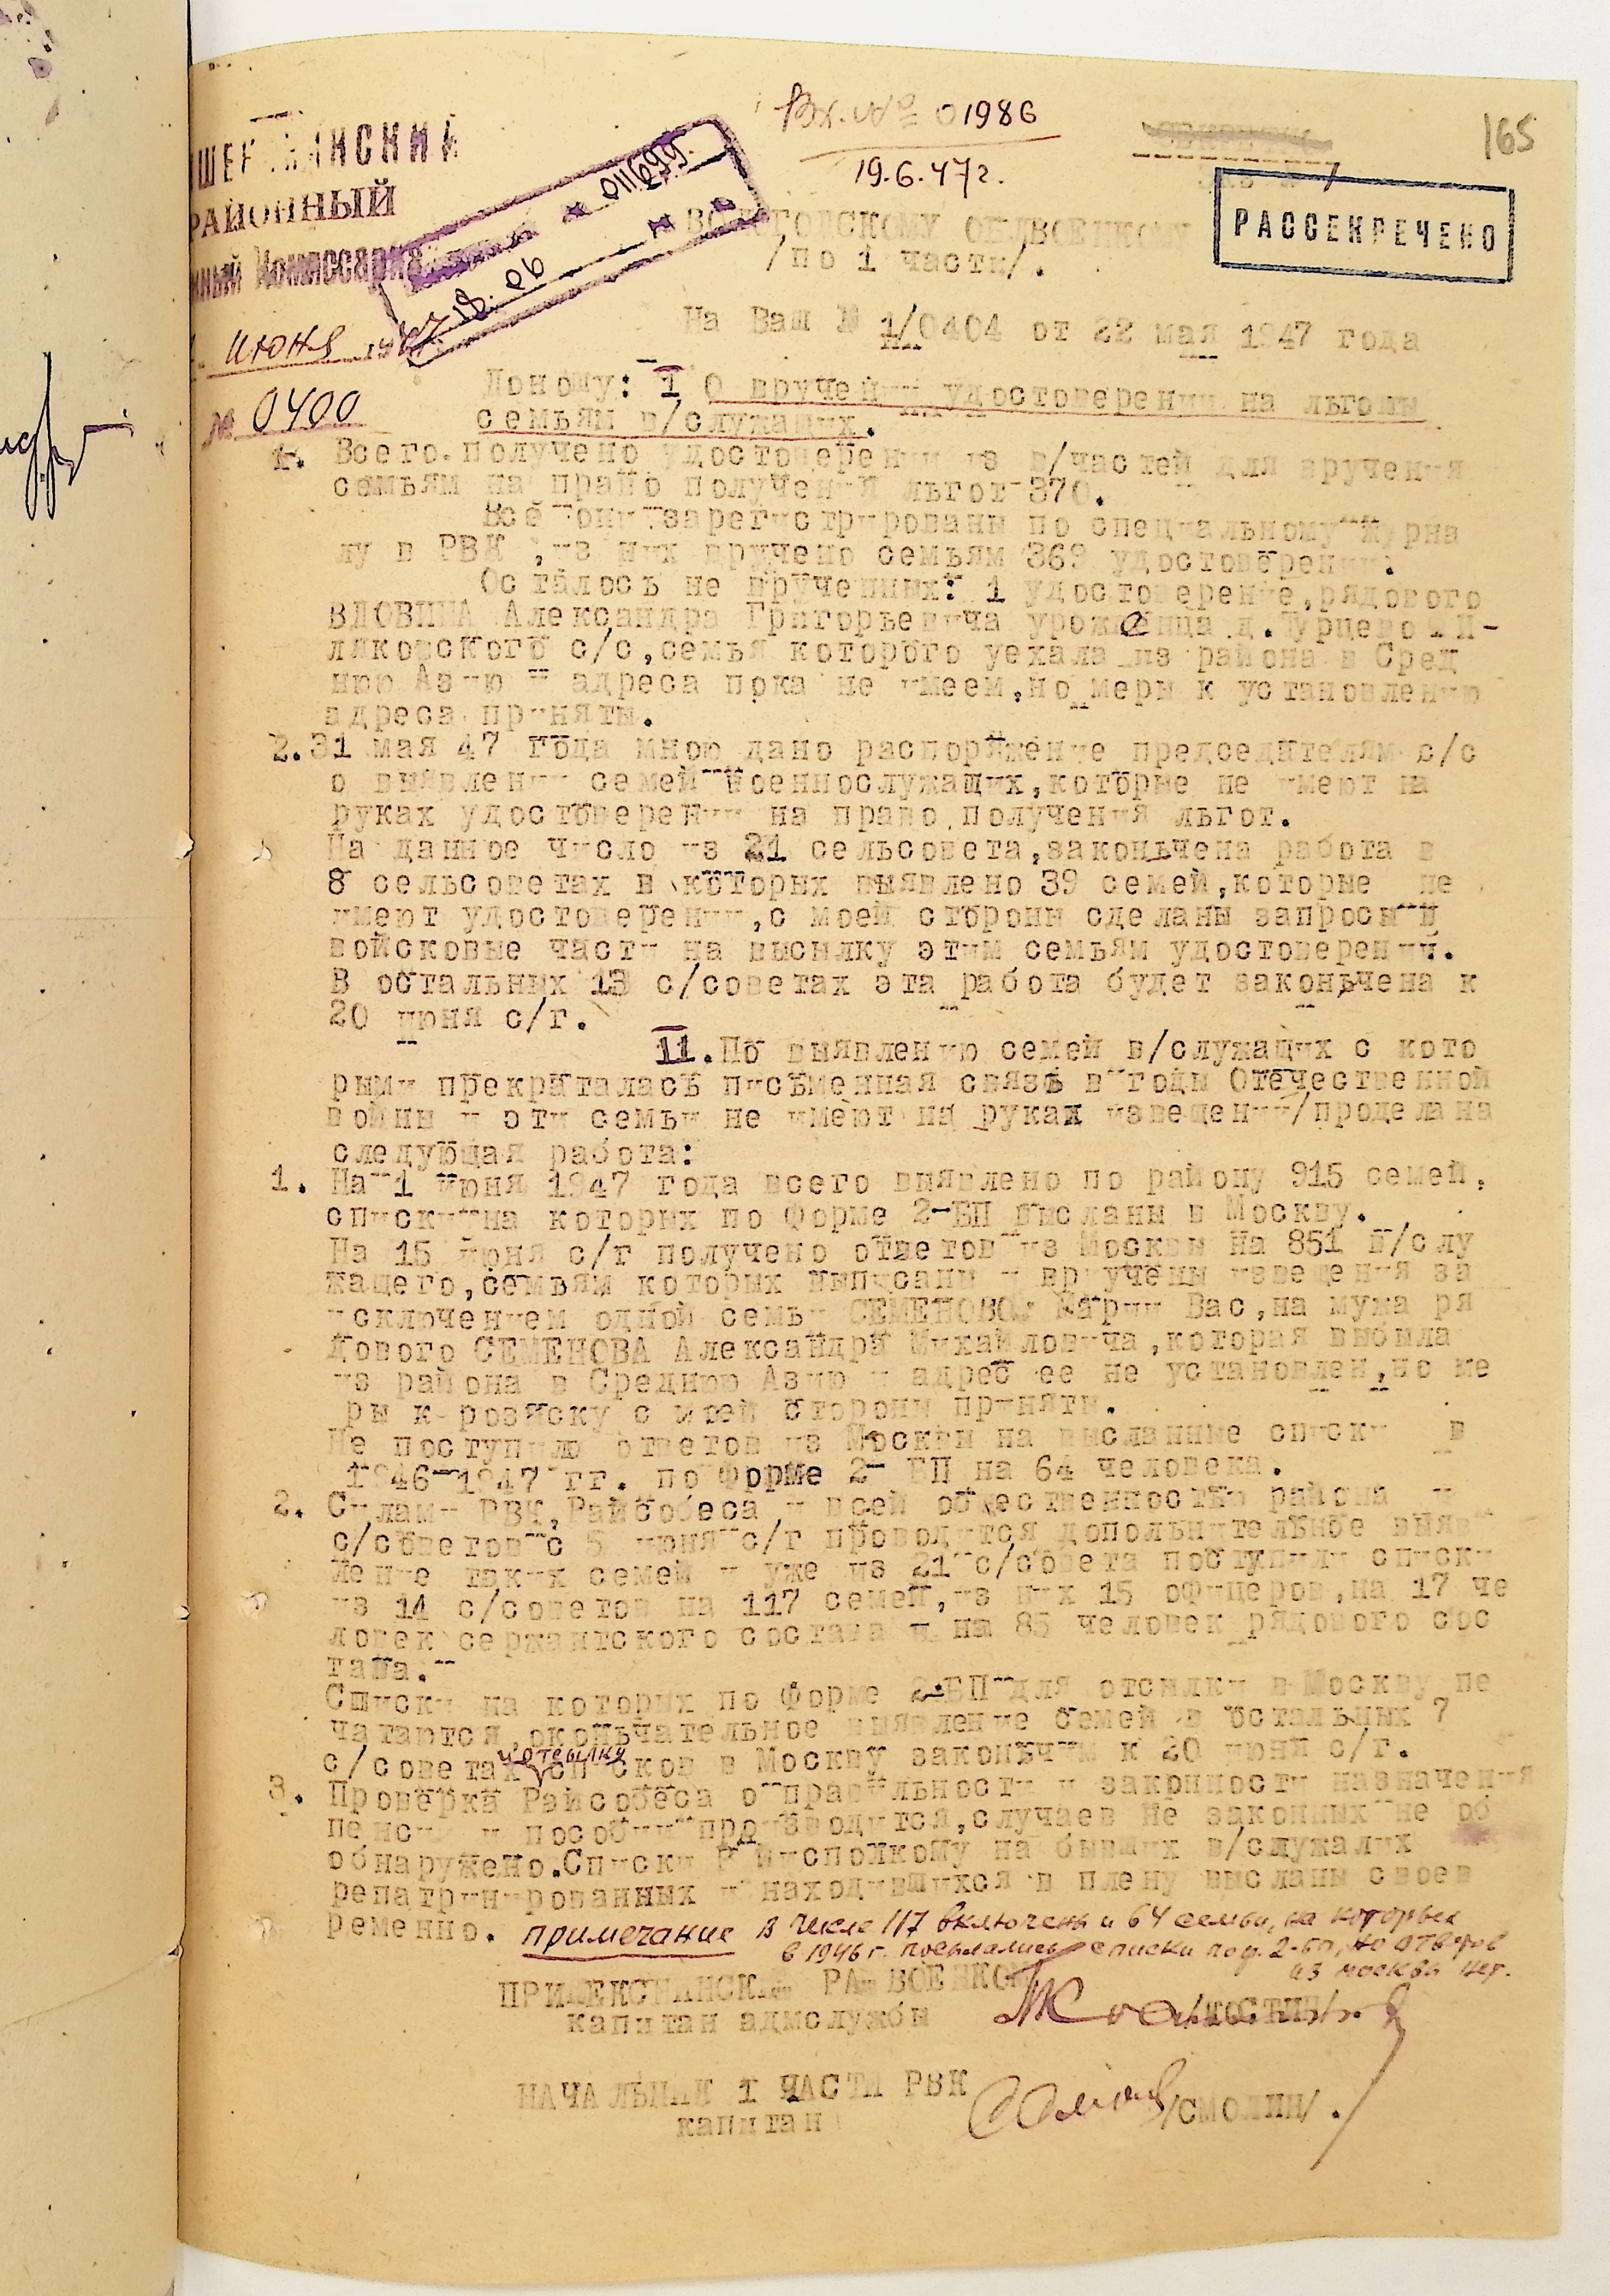 Вх. № 01986
19.6.47г.
165
РАЙОННЫЙ
РАССЕКРЕЧЕНО
ВОЛОГОДСКОМУ ОБЛВОЕНКОМУ
/по 1 части/.
июня
№ 0400
18. 06
На Ваш № 1/0404 от 22 мая 1947 года
Доношу: 1 О вручении удостоверении на льготы
семьям в/служащих.
1. Всего получено удостоверении из в/частей для вручения
семьям на право получения льгот-370.
Все они зарегистрированы по специальному журна
лу в РВК ,из них вручено семьям 369 удостоверении.
Осталось не врученных: 1 удостоверение,рядового
ВДОВИНА Александра Григорьевича уроженца д.Турцево
с/с,семья которого уехала из района в Сред
нюю Азию и адреса пока не имеем,но меры к установлению
адреса приняты.
2.31 мая 47 года мною дано распоряжение председателям с/с
о выявлении семей военнослужащих,которые не имеют на
руках удостоверении на право получения льгот.
На данное число из 21 сельсовета,законьчена работа в
8 сельсоветах в которых выявлено 39 семей,которые не
имеют удостоверении,с моей стороны сделаны запросы в
войсковые части на высылку этим семьям удостоверений.
В остальных 13 с/советах эта работа будет законьчена к
20 июня с/г.
11.По выявлению семей в/служащих с кото
рыми прекраталась письменная связь в годы Отечественной
войны и эти семьи не имеют на руках извещении/проделана
следующая работа:
1. На 1 июня 1947 года всего выявлено по району 915 семей,
списки на которых по Форме 2-БП высланы в Москву.
На 15 июня с/г получено ответов из Москвы на 851 в/слу
жащего,семьям которых выписаны и вручены извещения за
исключением одной семьи СЕМЕНОВОЙ Марии Вас,на мужа ря
дового СЕМЕНОВА Александра Михайловича,которая выбыла
из района в Среднюю Азию и адрес ее не установлен,но ме
ры к розыску с моей стороны приняты.
Не поступило ответов из Москвы на высланные списки в
1946-1947 гг. по Форме 2- БП на 64 человека.
2. Силами РВК,Райсобеса и всей общественностью района и
с/советов с 5 июня с/г проводится допольнительное выяв
ление таких семей и уже из 21 с/совета поступили списки
из 14 с/советов на 117 семей,из них 15 офицеров,на 17 че
ловек сержантского состава и на 85 человек рядового сос
тава.-
Списки на которых по Форме 2-БП для отсылки в Москву пе
чатаются,оконьчательное выявление семей в остальных 7
с/советах и отсылку списков в Москву законьчим к 20 июня с/г.
3. Проверка Райсобеса о правильности и законности назначения
пенсии и пособии производится,случаев не законных не об
обнаружено.Списки Райисполкому на бывших в/служалих
репатриированных и находившихся в плену высланы своев
ременно. Примечание В числе 117 включены и 64 семьи, на которых
в 1946 г. посылались списки по ф. 2-БП, но ответов
из Москвы нет.
ПРИШЕКСНИНСКИЙ РАЙВОЕНКОМ
капитан адмслужбы /КОСТИН/.
НАЧАЛЬНИК 1 ЧАСТИ РВК
капитан /СМОЛИН/.